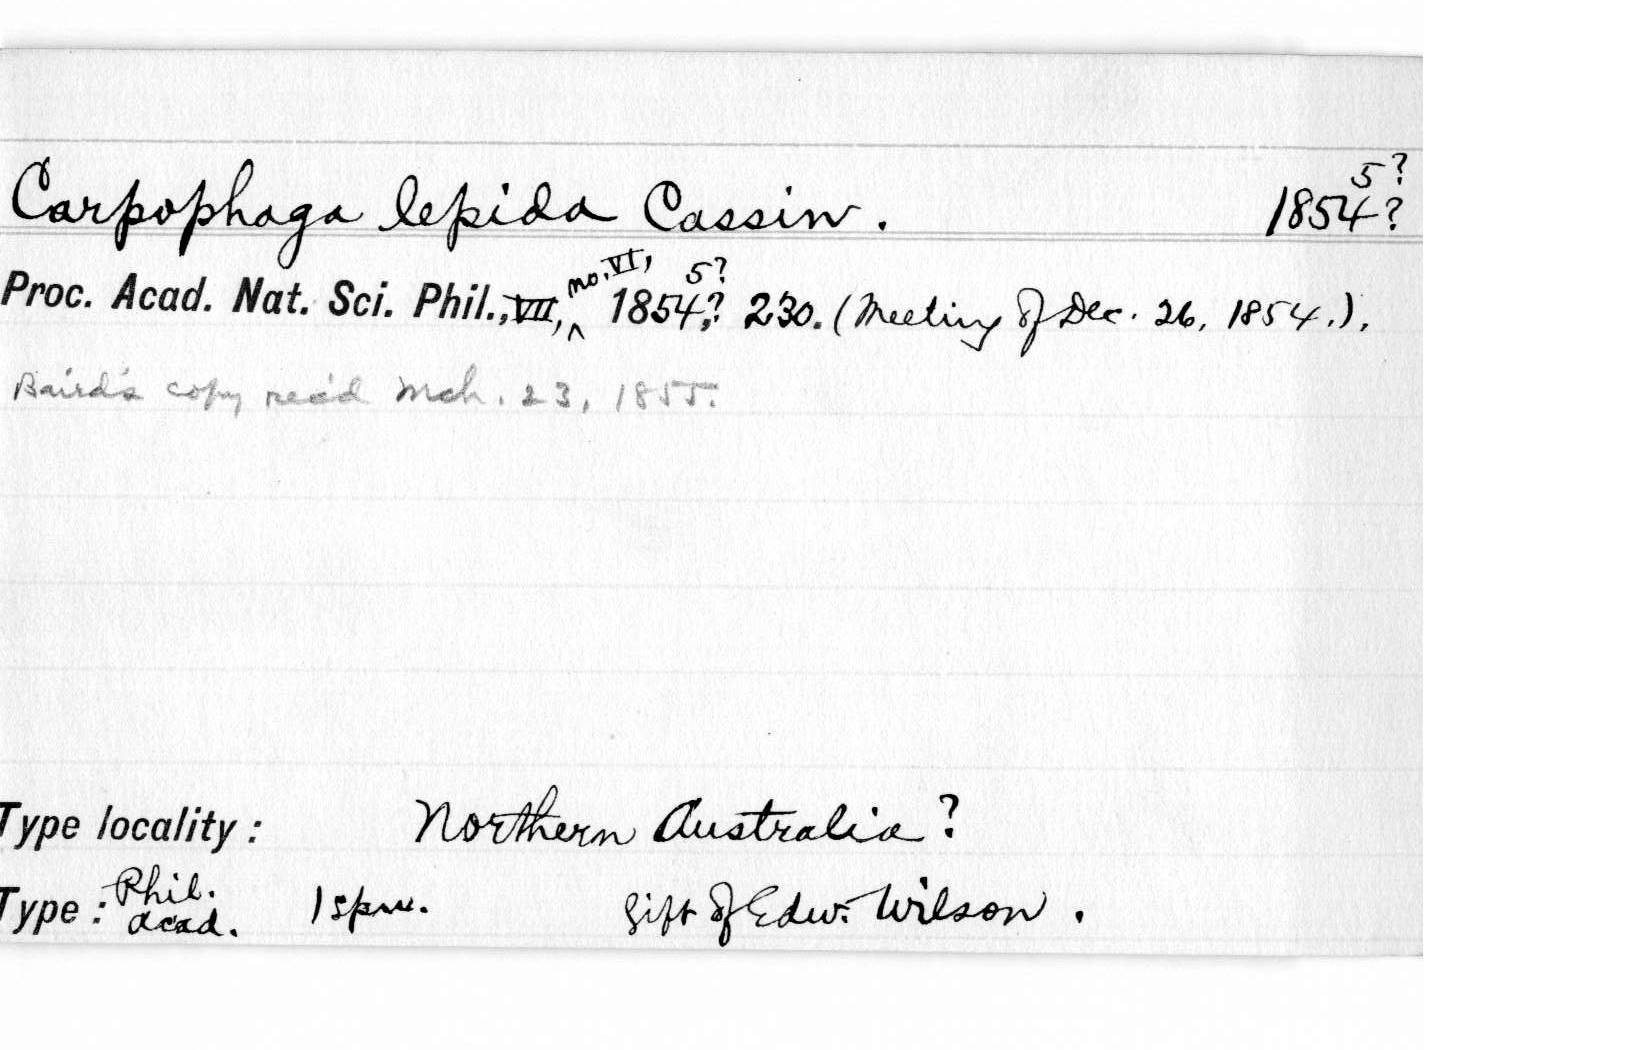 Carpophaga lepida Cassin. 1854? 5?
Proc. Acad. Nat. Sci. Phil., VII, no. VI, 1854,? 5? 230. (Meeting of Dec. 26, 1854.).
Baird's copy rec'd Mch. 23, 1855.
Type locality: Northern Australia?
Type: Phil. Acad. 1 spm. Gift of Edw. Wilson.